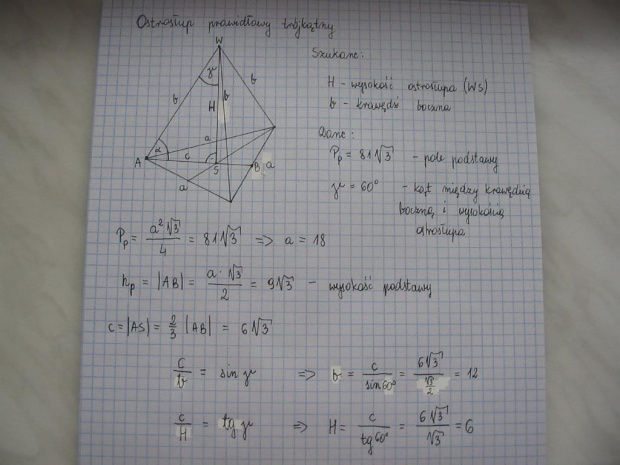 Ostrosłup prawidłowy trójkątny
W
γ
b
b
H
b
a
α
c
A
S
B
a
a
Szukane:
H - wysokość ostrosłupa (WS)
b - krawędź boczna
Dane:
Pp = 81√3 - pole podstawy
γ = 60° - kąt między krawędzią
boczną i wysokością
ostrosłupa
Pp = a²√3/4 = 81√3 => a = 18
hp = |AB| = a·√3/2 = 9√3 - wysokość podstawy
c = |AS| = 2/3 |AB| = 6√3
c/b = sin γ => b = c/sin60° = 6√3/(√3/2) = 12
c/H = tg γ => H = c/tg60° = 6√3/√3 = 6